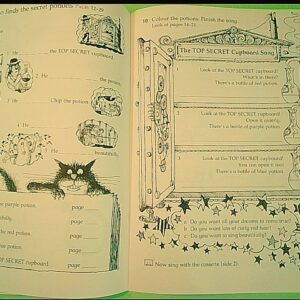 finds the secret potions Pages 12-19
the TOP SECRET cupboard.
2 He
the potions.
3 He
Clap the potion.
4 He
beautifully.
purple potion. page
page
the red potion. page
blue potion. page
TOP SECRET cupboard. page
10 Colour the potions. Finish the song.
Look at pages 14-21.
The TOP SECRET Cupboard Song
1 Look at the TOP SECRET cupboard!
What's in there?
There's a bottle of red potion.
2 Look at the TOP SECRET cupboard!
Open it quietly.
There's a bottle of purple potion.
3 Look at the TOP SECRET cupboard!
You can open it too!
There's a bottle of blue potion.
a Do you want all your dreams to come true?
b Do you want lots of curly red hair?
c Do you want to sing beautifully?
Now sing with the cassette (side 2).